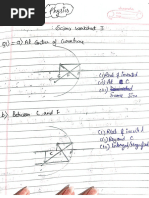 Physics
Exams Worksheet I
Q1) = a) At Center of Curvature
(i) Real & Inverted
(ii) At C
(iii) Same Size
b) Between C and F
(i) Real & Inverted
(ii) Beyond C
(iii) Enlarged/Magnified